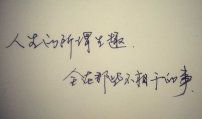 人生的所谓生趣
全在那些不相干的事